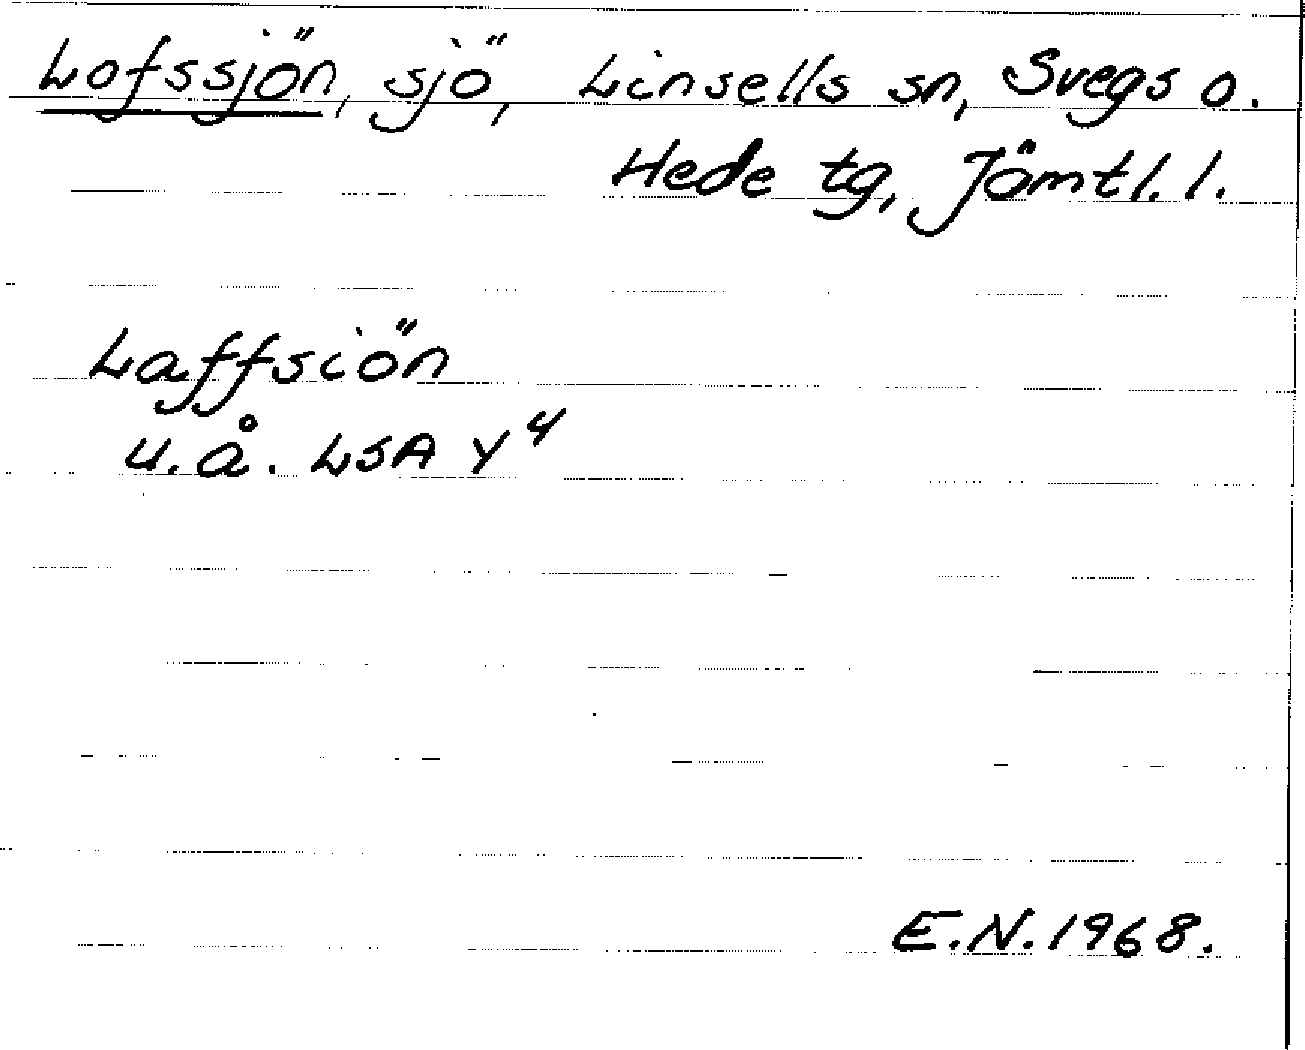 Lofssjön, sjö, Linsells sn, Svegs o.
Hede tg, Jämtl. l.
Laffsiön
u.å. LSA Y4
E.N. 1968.